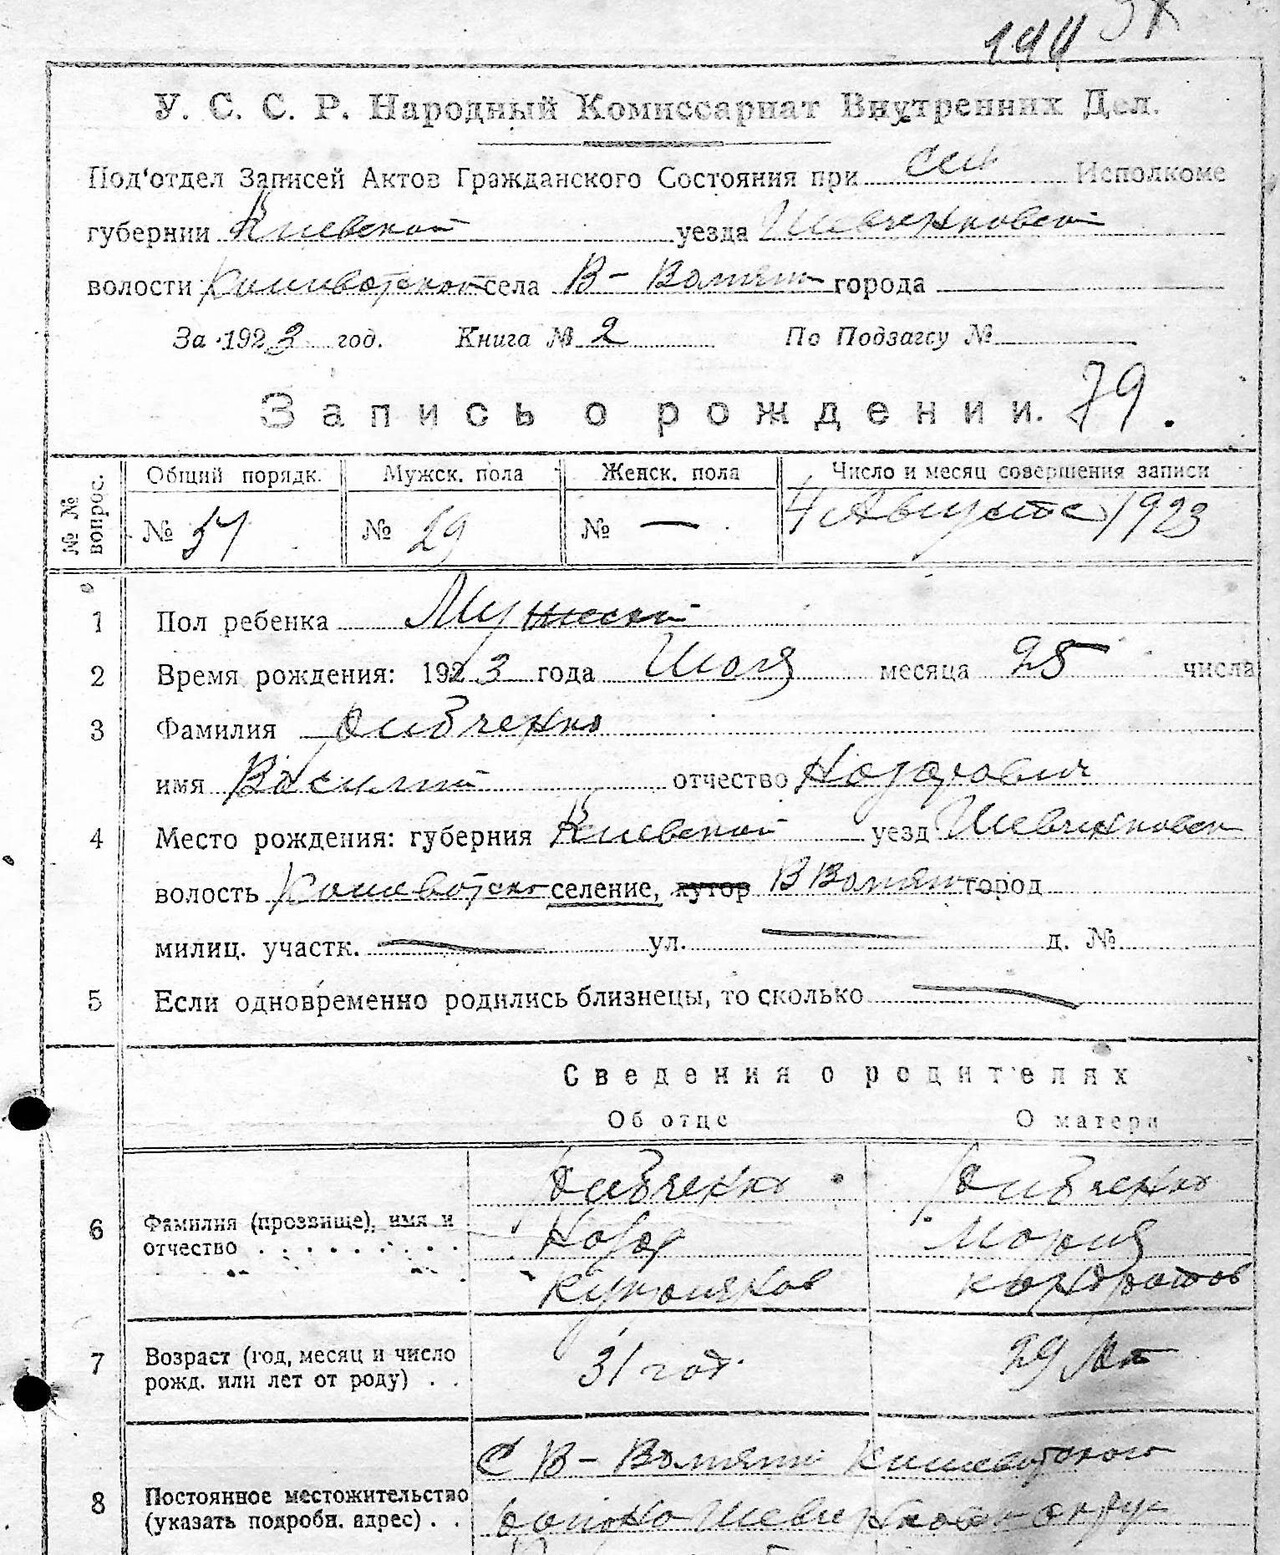 У. С. С. Р. Народный Комиссариат Внутренних Дел.
Под'отдел Записей Актов Гражданского Состояния при Исполкоме
губернии Киевской уезда Шевченковской
волости села В - города
За 1923 год. Книга № 2 По Подзагсу №
Запись о рождении. 79.
№ № вопрос. Общий порядк. Мужск. пола Женск. пола Число и месяц совершения записи
№ № 29 № — 4 Августа 1923
1 Пол ребенка Мужской
2 Время рождения: 1923 года Июля месяца 25 числа
3 Фамилия Дибченко
имя Василий отчество Назарович
4 Место рождения: губерния Киевской уезд Шевченковск
волость селение, хутор В город
милиц. участк. — ул. — д. №
5 Если одновременно родились близнецы, то сколько —
Сведения о родителях
Об отце О матери
6 Фамилия (прозвище), имя и отчество
Дибченко Дибченко
Назар Мария
Кондратов
7 Возраст (год, месяц и число рожд. или лет от роду) 31 год. 29 лет
8 Постоянное местожительство (указать подробн. адрес)
С В -